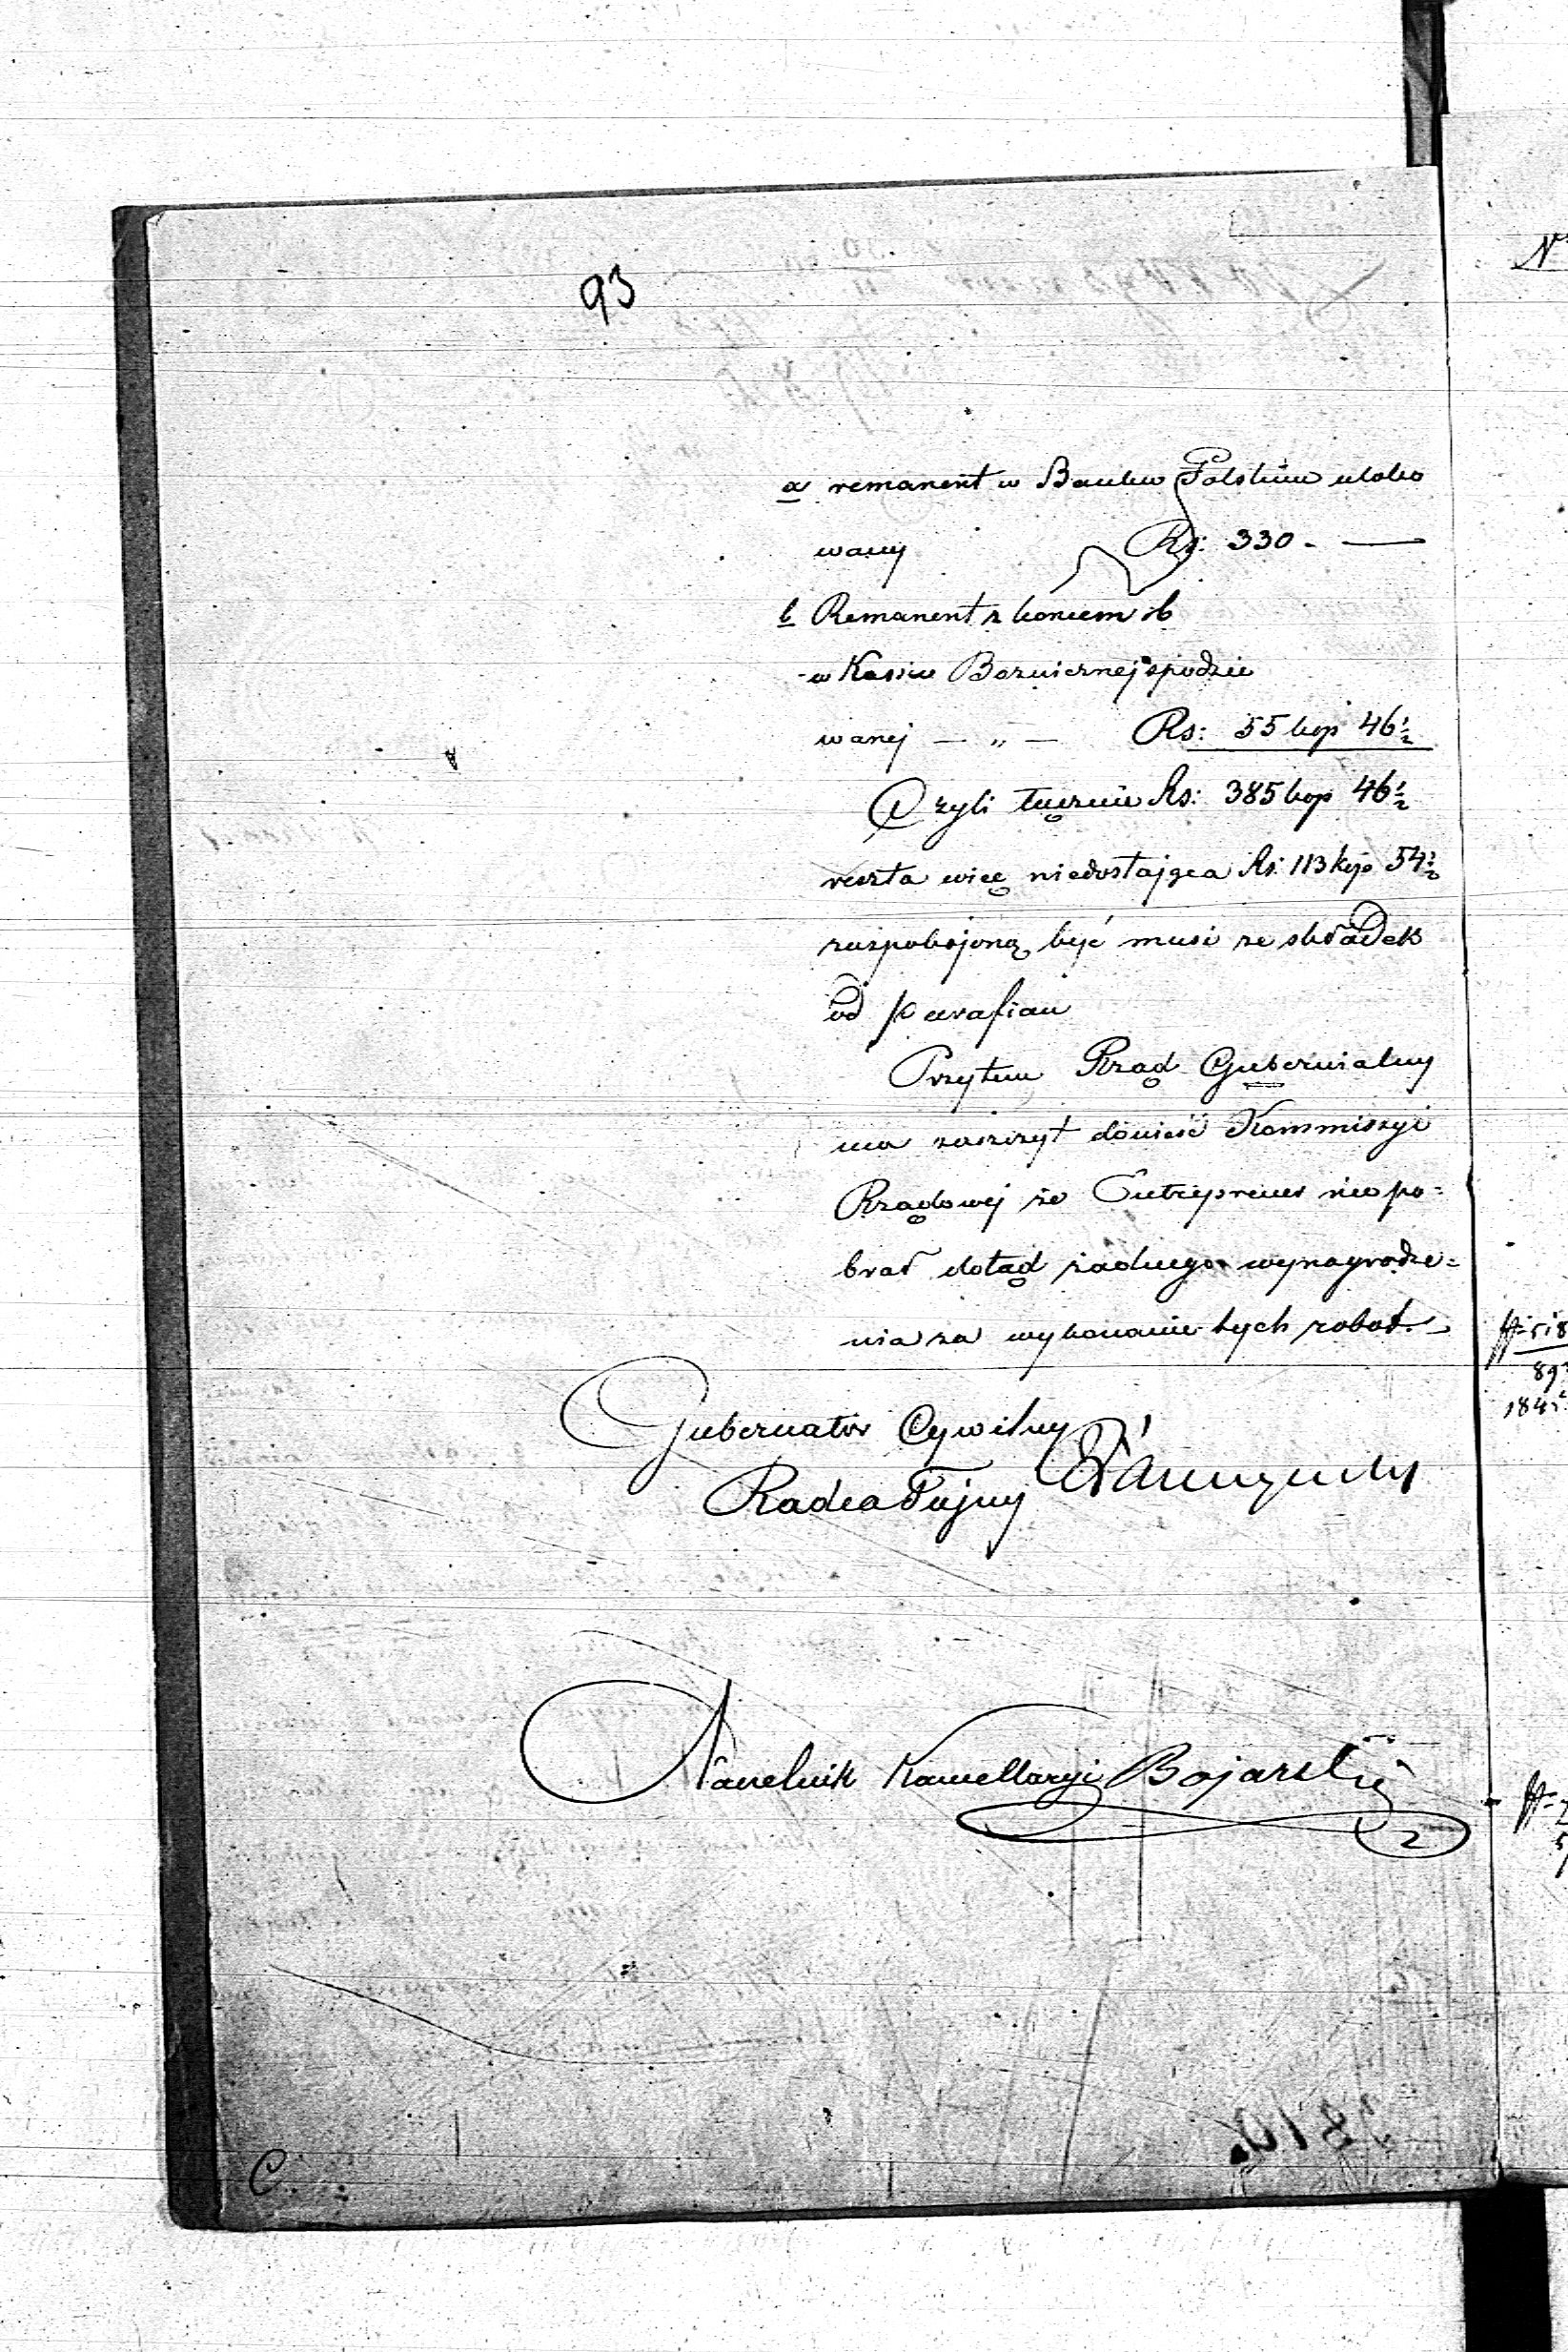 93
a remanent w Banku Polskim uloko
wany Rs: 330. —
b Remanent z końcem r b
w Kassie Bożnicznej spodzie
wanej — „ — Rs: 55 kop 46 1/2
Czyli łącznie Rs: 385 kop 46 1/2
reszta więc niedostająca Rs: 113 kop 54 1/2
zaspokojoną być musi ze składek
od parafian
Przytem Rząd Gubernialny
ma zaszczyt donieść Kommissyi
Rządowej że Entreprener nie po=
brał dotąd żadnego wynagrodze=
nia za wykonanie tych robot.
Gubernator Cywilny
Radca Tajny
Naczelnik Kancellaryi Bojarski
C.